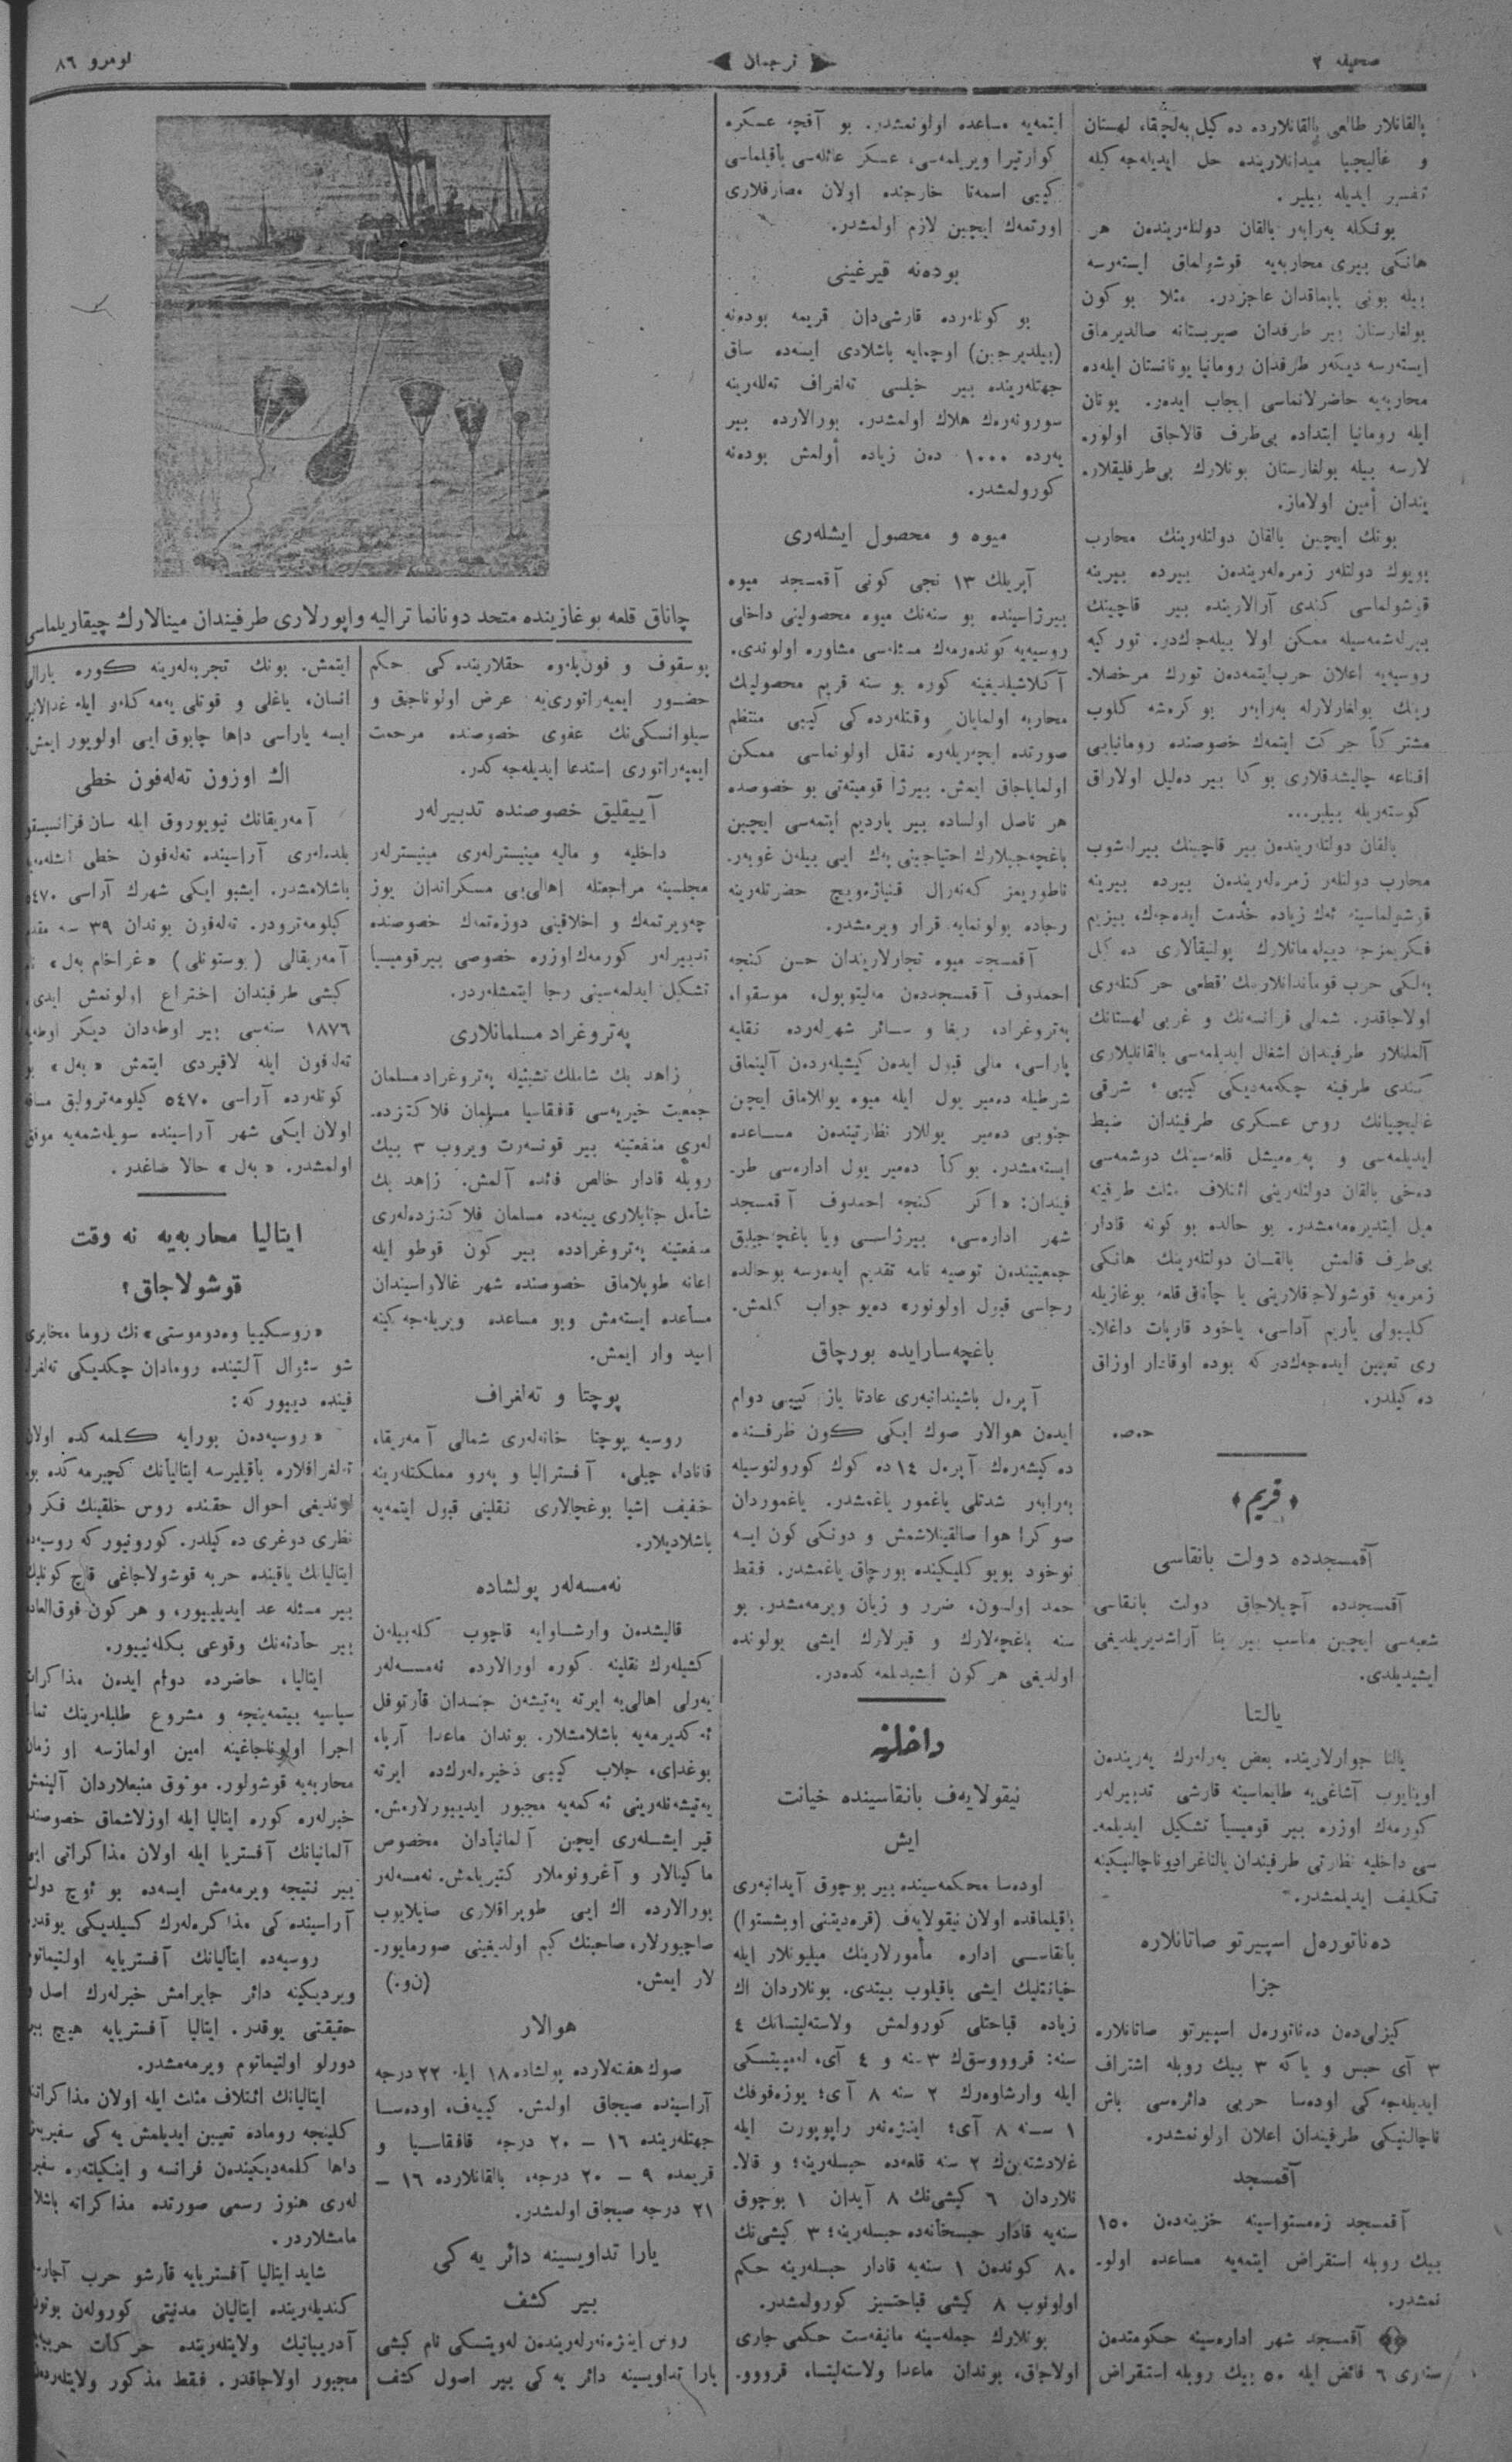 صحیفه ٢
ترجمان
نومرو ٨٦
بالقانلار طالعی بالقانلارده ده‌كیل به‌لچیقا، لهستان
و غالیچیا میدانلارینده حل ایدیله‌جه‌كیله
تفسیر ایدیله بیلیر.
بونكله به‌رابه‌ر بالقان دولتله‌رینده‌ن هر
هانكی بیری محاربه‌یه قوشولماق ایسته‌رسه
بیله بونی یاپماقدان عاجزدر. مثلا بو كون
بولغارستان بیر طرفدان صیربستانه صالدیرماق
ایسته‌رسه دیكه‌ر طرفدان رومانیا یونانستان ایله‌ده
محاربه‌یه حاضرلانماسی ایجاب ایده‌ر. یونان
ایله رومانیا ابتداده بی‌طرف قالاجاق اولور.
لارسه بیله بولغارستان بونلارك بی‌طرفلیقلار.
یندان أمین اولاماز.
بونك ایچین بالقان دولتله‌رینك محارب
بویوك دولتله‌ر زمره‌له‌رینده‌ن بیرده بیرینه
قوشولماسی كندی آرالارینده بیر قاچینك
بیرله‌شمه‌سیله ممكن اولا بیله‌جكدر. توركیه
روسیه‌یه اعلان حرب ایتمه‌ده‌ن تورك مرخصلا.
رینك بولغارلارله به‌رابه‌ر بوكره‌شه كلوب
مشتركاً حركت ایتمه‌ك خصوصنده رومانیایی
اقناعه چالیشدقلاری بوكا بیر ده‌لیل اولاراق
كوسته‌ریله بیلیر...
بالقان دولتله‌رینده‌ن بیر قاچینك بیرله‌شوب
محارب دولتله‌ر زمره‌له‌رینده‌ن بیرده بیرینه
قوشولماسینه ئه‌ك زیاده خدمت ایده‌جه‌ك، بیزیم
فكریمزجه دیپلوماتلارك پولتیقالاری ده‌كیل
به‌لكی حرب قومآندانلارینك قطعی حركتله‌ری
اولاجاقدر. شمالی فرانسه‌نك و غربی لهستانك
آلمانلار طرفیندان اشغال ایدیلمه‌سی بالقانلیلاری
كندی طرفینه چكمه‌دیكی كیبی، شرقی
غالیچیانك روس عسكری طرفیندان ضبط
ایدیلمه‌سی و په‌ره‌میشل قلعه‌سینك دوشمه‌سی
ده‌خی بالقان دولتله‌رینی ائتلاف مثلث طرفینه
میل ایتدیره‌مه‌مشدر. بو حالده بو كونه قادار
بی‌طرف قالمش بالقان دولتله‌رینك هانكی
زمره‌یه قوشولاجقلارینی یا چاناق قلعه بوغازیله
كلیبولی یاریم آداسی، یاخود قارپات داغلا.
ری تعیین ایده‌جه‌كدر كه بوده اوقادار اوزاق
ده‌كیلدر.
ح.ص.
﴿ قریم ﴾
آقمسجدده دولت بانقاسی
آقمسجدده آچیلاجاق دولت بانقاسی
شعبه‌سی ایچین مناسب بیر بنا آراشدیریلدیغی
ایشیدیلدی.
یالتا
یالتا جوارلارینده بعض یه‌رله‌رك یه‌رینده‌ن
اوینایوب آشاغی‌یه طایماسینه قارشی تدبیرله‌ر
كورمه‌ك اوزره بیر قومیسیا تشكیل ایدیلمه.
سی داخلیه نظارتی طرفیندان یالتا غرادوناچالنیكینه
تكلیف ایدیلمشدر.
ده‌ناتوره‌ل اسپیرتو صاتانلاره
جزا
كیزلی‌ده‌ن ده‌ناتوره‌ل اسپیرتو صاتانلاره
٣ آی حبس و یاكه ٣ بیك روبله اشتراف
ایدیله‌جه‌كی اوده‌سا حربی دائره‌سی باش
ناچالنیكی طرفیندان اعلان اولونمشدر.
آقمسجد
آقمسجد زه‌مستواسینه خزینه‌ده‌ن ١٥٠
بیك روبله استقراض ایتمه‌یه مساعده اولو.
نمشدر.
آقمسجد شهر اداره‌سینه حكومتده‌ن
سنوی ٦ فائض ایله ٥٠ بیك روبله استقراض
ایتمه‌یه مساعده اولونمشدر. بو آقچه عسكره
كوارتیرا ویریلمه‌سی، عسكر عائله‌سی باقیلماسی
كیبی اسمه‌تا خارجنده اولان مصارفلاری
اورتمه‌ك ایچین لازم اولمشدر.
بوده‌نه قیرغینی
بو كونله‌رده قارشی‌دان قریمه بوده‌نه
(بیلدیرجین) اوچمایه باشلادی ایسه‌ده ساق
جهتله‌رینده بیر خیلسی ته‌لغراف ته‌للرینه
سورونه‌ره‌ك هلاك اولمشدر. بورالارده بیر
یه‌رده ١٠٠٠ ده‌ن زیاده أولمش بوده‌نه
كورولمشدر.
میوه و محصول ایشله‌ری
آپریلك ١٣ نجی كونی آقمسجد میوه
بیرژاسینده بو سنه‌نك میوه محصولینی داخلی
روسیه‌یه كونده‌رمه‌ك مسئله‌سی مشاوره اولوندی.
آكلاشیلدیغینه كوره بو سنه قریم محصولینك
محاربه اولمایان وقتله‌رده‌كی كیبی منتظم
صورتده ایچه‌ریله‌ره نقل اولونماسی ممكن
اولمایاجاق ایمش. بیرژا قومیته‌تی بو خصوصده
هر ناصل اولساده بیر یاردیم ایتمه‌سی ایچین
باغچه‌جیلارك احتیاجینی په‌ك ایی بیله‌ن غوبه‌ر.
ناطوریمز كه‌نه‌رال قنیاژه‌ویچ حضرتله‌رینه
رجاده بولونمایه قرار ویرمشدر.
آقمسجد میوه تجارلاریندان حسن كنجه
احمدوف آقمسجدده‌ن مه‌لیتوپول، موسقوا،
په‌تروغراد، ریغا و سائر شهرله‌رده نقلیه
پاراسی، مالی قبول ایده‌ن كیشیله‌رده‌ن آلینماق
شرطیله ده‌میر یول ایله میوه یوللاماق ایچن
جنوبی ده‌میر یوللار نظارتینده‌ن مساعده
ایسته‌مشدر. بوكا ده‌میر یول اداره‌سی طر.
فیندان: «اكر كنجه احمدوف آقمسجد
شهر اداره‌سی، بیرژاسی ویا باغچه‌جیلیق
جمعیتینده‌ن توصیه نامه تقدیم ایده‌رسه بوحالده
رجاسی قبول اولونور» ده‌یو جواب كلمش.
باغچه‌سارایده بورچاق
آپره‌ل باشیندانبه‌ری عادتا یاز كیبی دوام
ایده‌ن هوالار صوك ایكی كون ظرفنده
ده‌كیشه‌ره‌ك آپره‌ل ١٤ده كوك كورولتوسیله
به‌رابه‌ر شدتلی یاغمور یاغمشدر. یاغموردان
صوكرا هوا صالقینلاشمش و دونكی كون ایسه
نوخود بویوكلیكینده بورچاق یاغمشدر. فقط
حمد اولسون، ضرر و زیان ویرمه‌مشدر. بو
سنه باغچه‌لارك و قیرلارك ایشی یولونده
اولدیغی هر كون ایشیدیلمه‌كده‌در.
داخلیه
نیقولایه‌ف بانقاسینده خیانت
ایش
اوده‌سا محكمه‌سینده بیر بوچوق آیدانبه‌ری
باقیلماقده اولان نیقولایه‌ف (قره‌دیتنی اوبشستوا)
بانقاسی اداره مأمورلارینك میلیونلار ایله
خیانتلیك ایشی باقیلوب بیتدی. بونلاردان اك
زیاده قباحتلی كورولمش ولاسته‌لیتسانك ٤
سنه: قرووسق‌ك ٣ سنه و ٤ آی، له‌مپیتسكی
ایله وارشاوه‌رك ٢ سنه ٨ آی؛ یوزه‌فوفك
١ سنه ٨ آی؛ اینژه‌نه‌ر راپوپورت ایله
غلادشته‌ین‌ك ٢ سنه قلعه‌ده حبسله‌رینه؛ و قالا.
نلاردان ٦ كیشی‌نك ٨ آیدان ١ بوچوق
سنه‌یه قادار حبسخانه‌ده حبسله‌رینه؛ ٣ كیشی‌نك
٨٠ كونده‌ن ١ سنه‌یه قادار حبسله‌رینه حكم
اولونوب ٨ كیشی قباحتسیز كورولمشدر.
بونلارك جمله‌سینه مانیفه‌ست حكمی جاری
اولاجاق، بوندان ماعدا ولاسته‌لیتسا، قروو.
چاناق قلعه بوغازینده متحد دونانما ترالیه واپورلاری طرفیندان مینالارك چیقاریلماسی
یوسقوف و فون‌بله‌وه حقلارینده‌كی حكم
حضور ایمپه‌راتوری‌یه عرض اولوناجق و
سیلوانسكی‌نك عفوی خصوصنده مرحمت
ایمپه‌راتوری استدعا ایدیله‌جه‌كدر.
آییقلیق خصوصنده تدبیرله‌ر
داخلیه و مالیه مینیسترله‌ری مینیسترله‌ر
مجلسینه مراجعتله إهالی‌یی مسكراندان یوز
چه‌ویرتمه‌ك و اخلاقینی دوزه‌تمه‌ك خصوصنده
تدبیرله‌ر كورمه‌ك اوزره خصوصی بیرقومیسیا
تشكیل ایدلمه‌سینی رجا ایتمشله‌ردر.
په‌تروغراد مسلمانلاری
زاهد بك شاملك تشبثیله په‌تروغراد مسلمان
جمعیت خیریه‌سی قافقاسیا مسلمان فلاكتزده.
له‌ری منفعتینه بیر قونسه‌رت ویروب ٣ بیك
روبله قادار خالص فائده آلمش. زاهد بك
شامل جنابلاری یینه‌ده مسلمان فلاكتزده‌له‌ری
منفعتینه په‌تروغرادده بیر كون قوطو ایله
اعانه طوپلاماق خصوصنده شهر غالاواسیندان
مساعده ایسته‌مش وبو مساعده ویریله‌جه‌كینه
امید وار ایمش.
پوچتا و ته‌لغراف
روسیه پوچتا خانه‌له‌ری شمالی آمه‌ریقا،
قانادا، چیلی، آفسترالیا و په‌رو مملكتله‌رینه
خفیف اشیا بوغچالاری نقلینی قبول ایتمه‌یه
باشلادیلار.
نه‌مسه‌له‌ر پولشاده
قالیشده‌ن وارشاوایه قاچوب كله‌بیله‌ن
كشیله‌رك نقلینه كوره اورالارده نه‌مسه‌له‌ر
یه‌رلی اهالی‌یه ایرته یه‌تیشه‌ن جنسدان قارتوفل
ئه‌كدیرمه‌یه باشلامشلار. بوندان ماعدا آرپا،
بوغدای، جلاب كیبی ذخیره‌له‌رك‌ده ایرته
یه‌تیشه‌نله‌رینی ئه‌كمه‌یه مجبور ایدییورلارمش.
قیر ایشله‌ری ایچین آلمانیادان مخصوص
ماكینالار و آغرونوملار كتیریلمش. نه‌مسه‌له‌ر
بورالارده اك ایی طوپراقلاری صایلایوب
صاچیورلار، صاحبنك كیم اولدیغینی صورمایور.
لار ایمش. (ن.و.)
هوالار
صوك هفته‌لارده پولشاده ١٨ ایله ٢٢ درجه
آراسینده صیجاق اولمش. كییه‌ف، اوده‌سا
جهتله‌رینده ١٦ – ٢٠ درجه قافقاسیا و
قریمده ٩ – ٢٠ درجه، بالقانلارده ١٦ –
٢١ درجه صیجاق اولمشدر.
یارا تداویسینه دائر یه‌كی
بیر كشف
روس اینژه‌نه‌رله‌رینده‌ن له‌ویتسكی نام كیشی
یارا تداویسینه دائر یه‌كی بیر اصول كشف
ایتمش. بونك تجربه‌له‌رینه كوره یارالی
انسان، یاغلی و قوتلی یه‌مه‌كله‌ر ایله غدالانیر
ایسه یاراسی داها چابوق ایی اولویور ایمش.
اك اوزون ته‌له‌فون خطی
آمه‌ریقانك نیویوروق ایله سان فرانسیسقو
بلده‌له‌ری آراسینده ته‌له‌فون خطی ایشله‌مه‌یه
باشلامشدر. ایشبو ایكی شهرك آراسی ٥٤٧٠
كیلومه‌ترودر. ته‌له‌فون بوندان ٣٩ سنه مقدم
آمه‌ریقالی (بوستونلی) «غراخام به‌ل» نام
كیشی طرفیندان إختراع اولونمش ایدی.
١٨٧٦ سنه‌سی بیر اوطه‌دان دیكر اوطه‌یه
ته‌له‌فون ایله لاقیردی ایتمش «به‌ل» بو
كونله‌رده آراسی ٥٤٧٠ كیلومه‌ترولیق مسافه
اولان ایكی شهر آراسینده سویله‌شمه‌یه موفق
اولمشدر. «به‌ل» حالا صاغدر.
ایتالیا محاربه‌یه نه وقت
قوشولاجاق؟
«روسكییا وه‌دوموستی» نك روما مخابری
شو سئوال آلتینده رومادان چكدیكی ته‌لغرا
فینده دییور كه:
«روسیه‌ده‌ن بورایه كلمه‌كده اولان
ته‌لغرافلاره باقیلیرسه ایتالیانك كچیرمه‌كده بو
لوندیغی احوال حقنده روس خلقینك فكر و
نظری دوغری ده‌كیلدر. كورونیور كه روسیه‌ده
ایتالیانك یاقینده حربه قوشولاجاغی قاچ كونلیك
بیر مسئله عد ایدیلییور، و هر كون فوق‌العاده
بیر حادثه‌نك وقوعی بكله‌نییور.
ایتالیا، حاضرده دوام ایده‌ن مذاكرات
سیاسیه بیتمه‌ینجه و مشروع طلبله‌رینك تماما
اجرا اولوناجاغینه امین اولمازسه او زمان
محاربه‌یه قوشولور. موثوق منبعلاردان آلینمش
خبرله‌ره كوره ایتالیا ایله اوزلاشماق خصوصنده
آلمانیانك آفستریا ایله اولان مذاكراتی ایی
بیر نتیجه ویرمه‌مش ایسه‌ده بو ئوچ دولت
آراسینده‌كی مذاكره‌له‌رك كسیلدیكی یوقدر.
روسیه‌ده ایتالیانك آفستریایه اولتیماتوم
ویردیكینه دائر جایرامش خبرله‌رك اصل و
حقیقتی یوقدر. ایتالیا آفستریایه هیچ بیر
دورلو اولتیماتوم ویرمه‌مشدر.
ایتالیانك ائتلاف مثلث ایله اولان مذاكراتنه
كلینجه روماده تعیین ایدیلمش یه‌كی سفیریه‌نك
داها كلمه‌دیكینده‌ن فرانسه و اینكیلتره سفیر
له‌ری هنوز رسمی صورتده مذاكراته باشلا
مامشلاردر.
شاید ایتالیا آفستریایه قارشو حرب آچارسه
كندیله‌رینده ایتالیان مدنیتی كوروله‌ن بوتون
آدریاتیك ولایتله‌رینده حركات حربیه
مجبور اولاجاقدر. فقط مذكور ولایتله‌رده